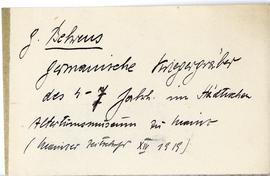 G. Behrens
Germanische Kriegergräber
des 4-7 Jahrh. im Städtischen
Altertumsmuseum zu Mainz
(Mainzer Zeitschrift XIII 1918)